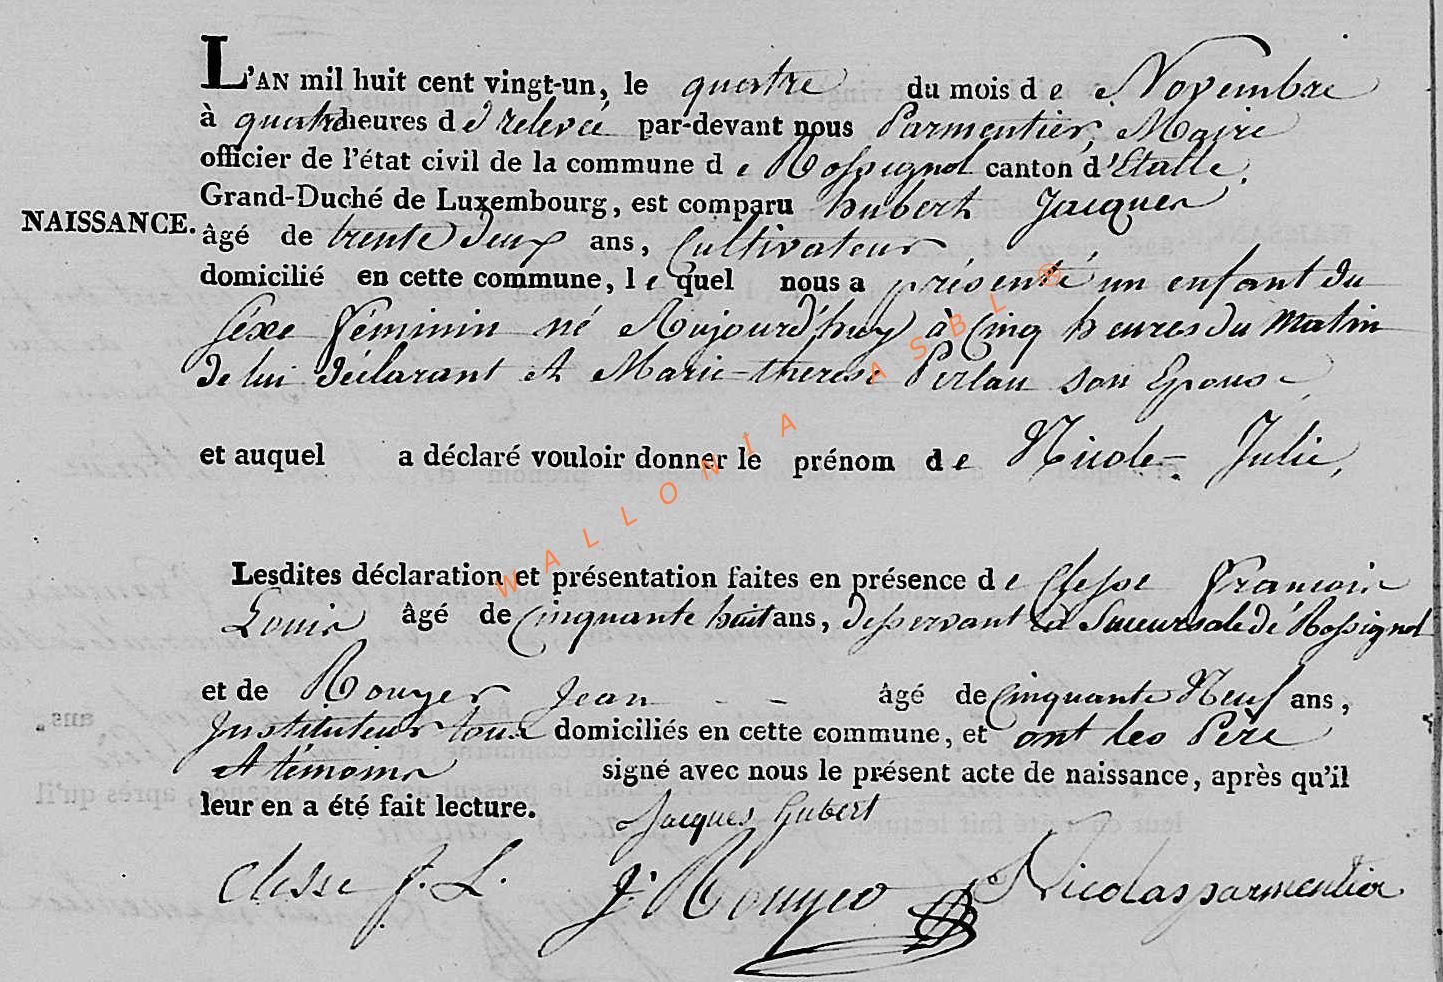 L'AN mil huit cent vingt-un, le quatre du mois de Novembre
à quatre heures de relevée par-devant nous Parmentier, Maire
officier de l'état civil de la commune de Rossignol canton d'Etalle,
Grand-Duché de Luxembourg, est comparu hubert Jacques
NAISSANCE.
âgé de trente deux ans, Cultivateur
domicilié en cette commune, lequel nous a présenté un enfant du
séxe féminin né Aujourd'huy à Cinq heures du Matin
de lui déclarant et Marie-therese Perlau son Epouse
et auquel a déclaré vouloir donner le prénom de Nicole Julie,
Lesdites déclaration et présentation faites en présence de Clesse Francois
Louis âgé de Cinquante huit ans, desservant la Succursale de Rossignol
et de Rouyer Jean - - âgé de Cinquante Neuf ans,
Instituteur tous domiciliés en cette commune, et ont les Père
et témoins signé avec nous le présent acte de naissance, après qu'il
leur en a été fait lecture.
Jacques hubert
Clesse f. L. J. Rouyer Nicolas parmentier
WALLONIA ASBL ®